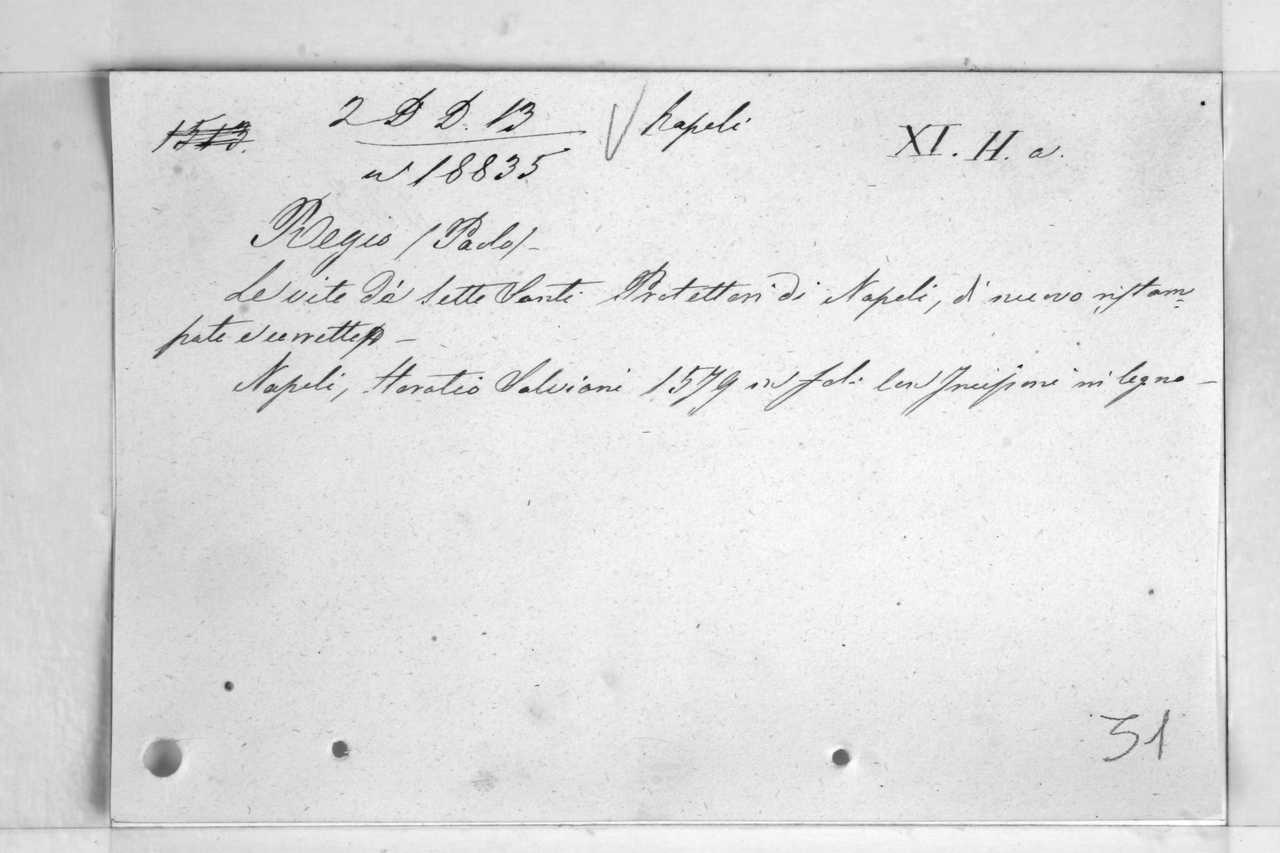 1513. 2 D D. 13 Napoli XI. H. a.
n 18835
Regio (Paolo)-
Le vite de' Sette Santi Protettori di Napoli, di nuovo ristam=
pate e corrette -
Napoli, Horatio Salviani 1579 in fol: con Incisioni in legno -
51